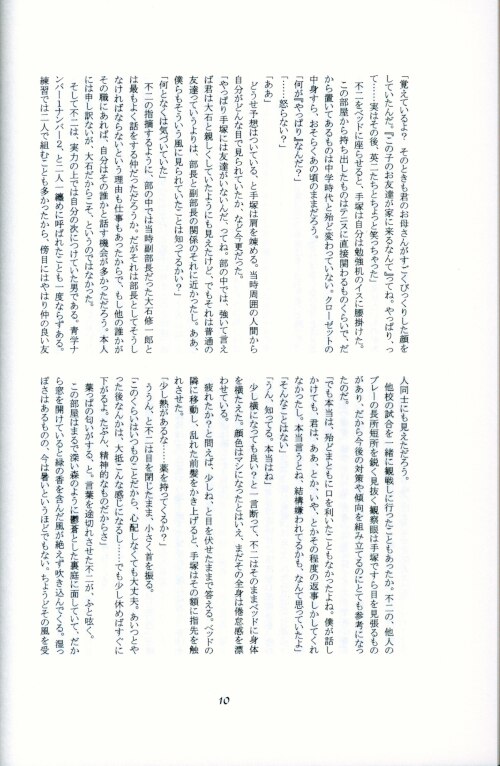 「覚えているよ？ そのときも君のお母さんがすごくびっくりした顔を
していたんだ。『この子のお友達が家に来るなんて』ってね。やっぱり、っ
て……実はその後、英二たちとちょっと笑っちゃった」
不二をベッドに座らせると、手塚は自分は勉強机のイスに腰掛けた。
この部屋から持ち出したものはテニスに直接関わるものくらいで、だ
から置いてあるものは中学時代と殆ど変わっていない。クローゼットの
中身すら、おそらくあの頃のままだろう。
「何が『やっぱり』なんだ？」
「……怒らない？」
「ああ」
どうせ予想はついている、と手塚は肩を竦める。当時周囲の人間から
自分がどんな目で見られていたか、などと今更だった。
「やっぱり手塚には友達がいないんだ、ってね。部の中では、強いて言え
ば君は大石と親しくしていたようにも見えたけど、でもそれは普通の
友達っていうよりは、部長と副部長の関係のそれに近かったし。ああ、
僕らもそういう風に見られていたことは知ってるかい？」
「何となくは気づいていた」
不二の指摘するように、部の中では当時副部長だった大石修一郎と
は最もよく話をする仲だっただろうか。だがそれは部長としてそうし
なければならないという理由も仕事もあったからで、もし他の誰かが
その職にあれば、自分はその誰かと話す機会が多かっただろう。本人
には申し訳ないが、大石だからこそ、というのではなかった。
そして不二は、実力の上では自分の次につけていた男である。青学ナ
ンバー１ナンバー２、と二人一纏めに呼ばれたことも一度ならずある。
練習では二人で組むことも多かったから、傍目にはやはり仲の良い友
人同士にも見えただろう。
他校の試合を一緒に観戦しに行ったこともあったか。不二の、他人の
プレーの長所短所を鋭く見抜く観察眼は手塚ですら目を見張るもの
があり、だから今後の対策や傾向を組み立てるのにとても参考になっ
たのだ。
「でも本当は、殆どまともに口を利いたこともなかったよね。僕が話し
かけても、君は、ああ、とか、いや、とかその程度の返事しかしてくれ
なかったし。本当言うとね、結構嫌われてるかも、なんて思っていたよ」
「そんなことはない」
「うん、知ってる。本当はね」
少し横になっても良い？と一言断って、不二はそのままベッドに身体
を横たえた。顔色はマシになったとはいえ、まだその全身は倦怠感を漂
わせている。
疲れたか？と問えば、少しね、と目を伏せたままで答える。ベッドの
隣に移動し、乱れた前髪をかき上げると、手塚はその額に指先を触
れさせた。
「少し熱があるな……薬を持ってくるか？」
ううん、と不二は目を閉じたまま、小さく首を振る。
「このくらいはいつものことだから、心配しなくても大丈夫。あいつとや
った後なんかは、大抵こんな感じになるし……でも少し休めばすぐに
下がるよ。たぶん、精神的なものだからさ」
葉っぱの匂いがする、と。言葉を途切れさせた不二が、ふと呟く。
この部屋はまるで深い森のように鬱蒼とした裏庭に面していて、だか
ら窓を開けていると緑の香を含んだ風が絶えず吹き込んでくる。湿っ
ぽさはあるものの、今は暑いというほどでもない。ちょうどその風を受
10